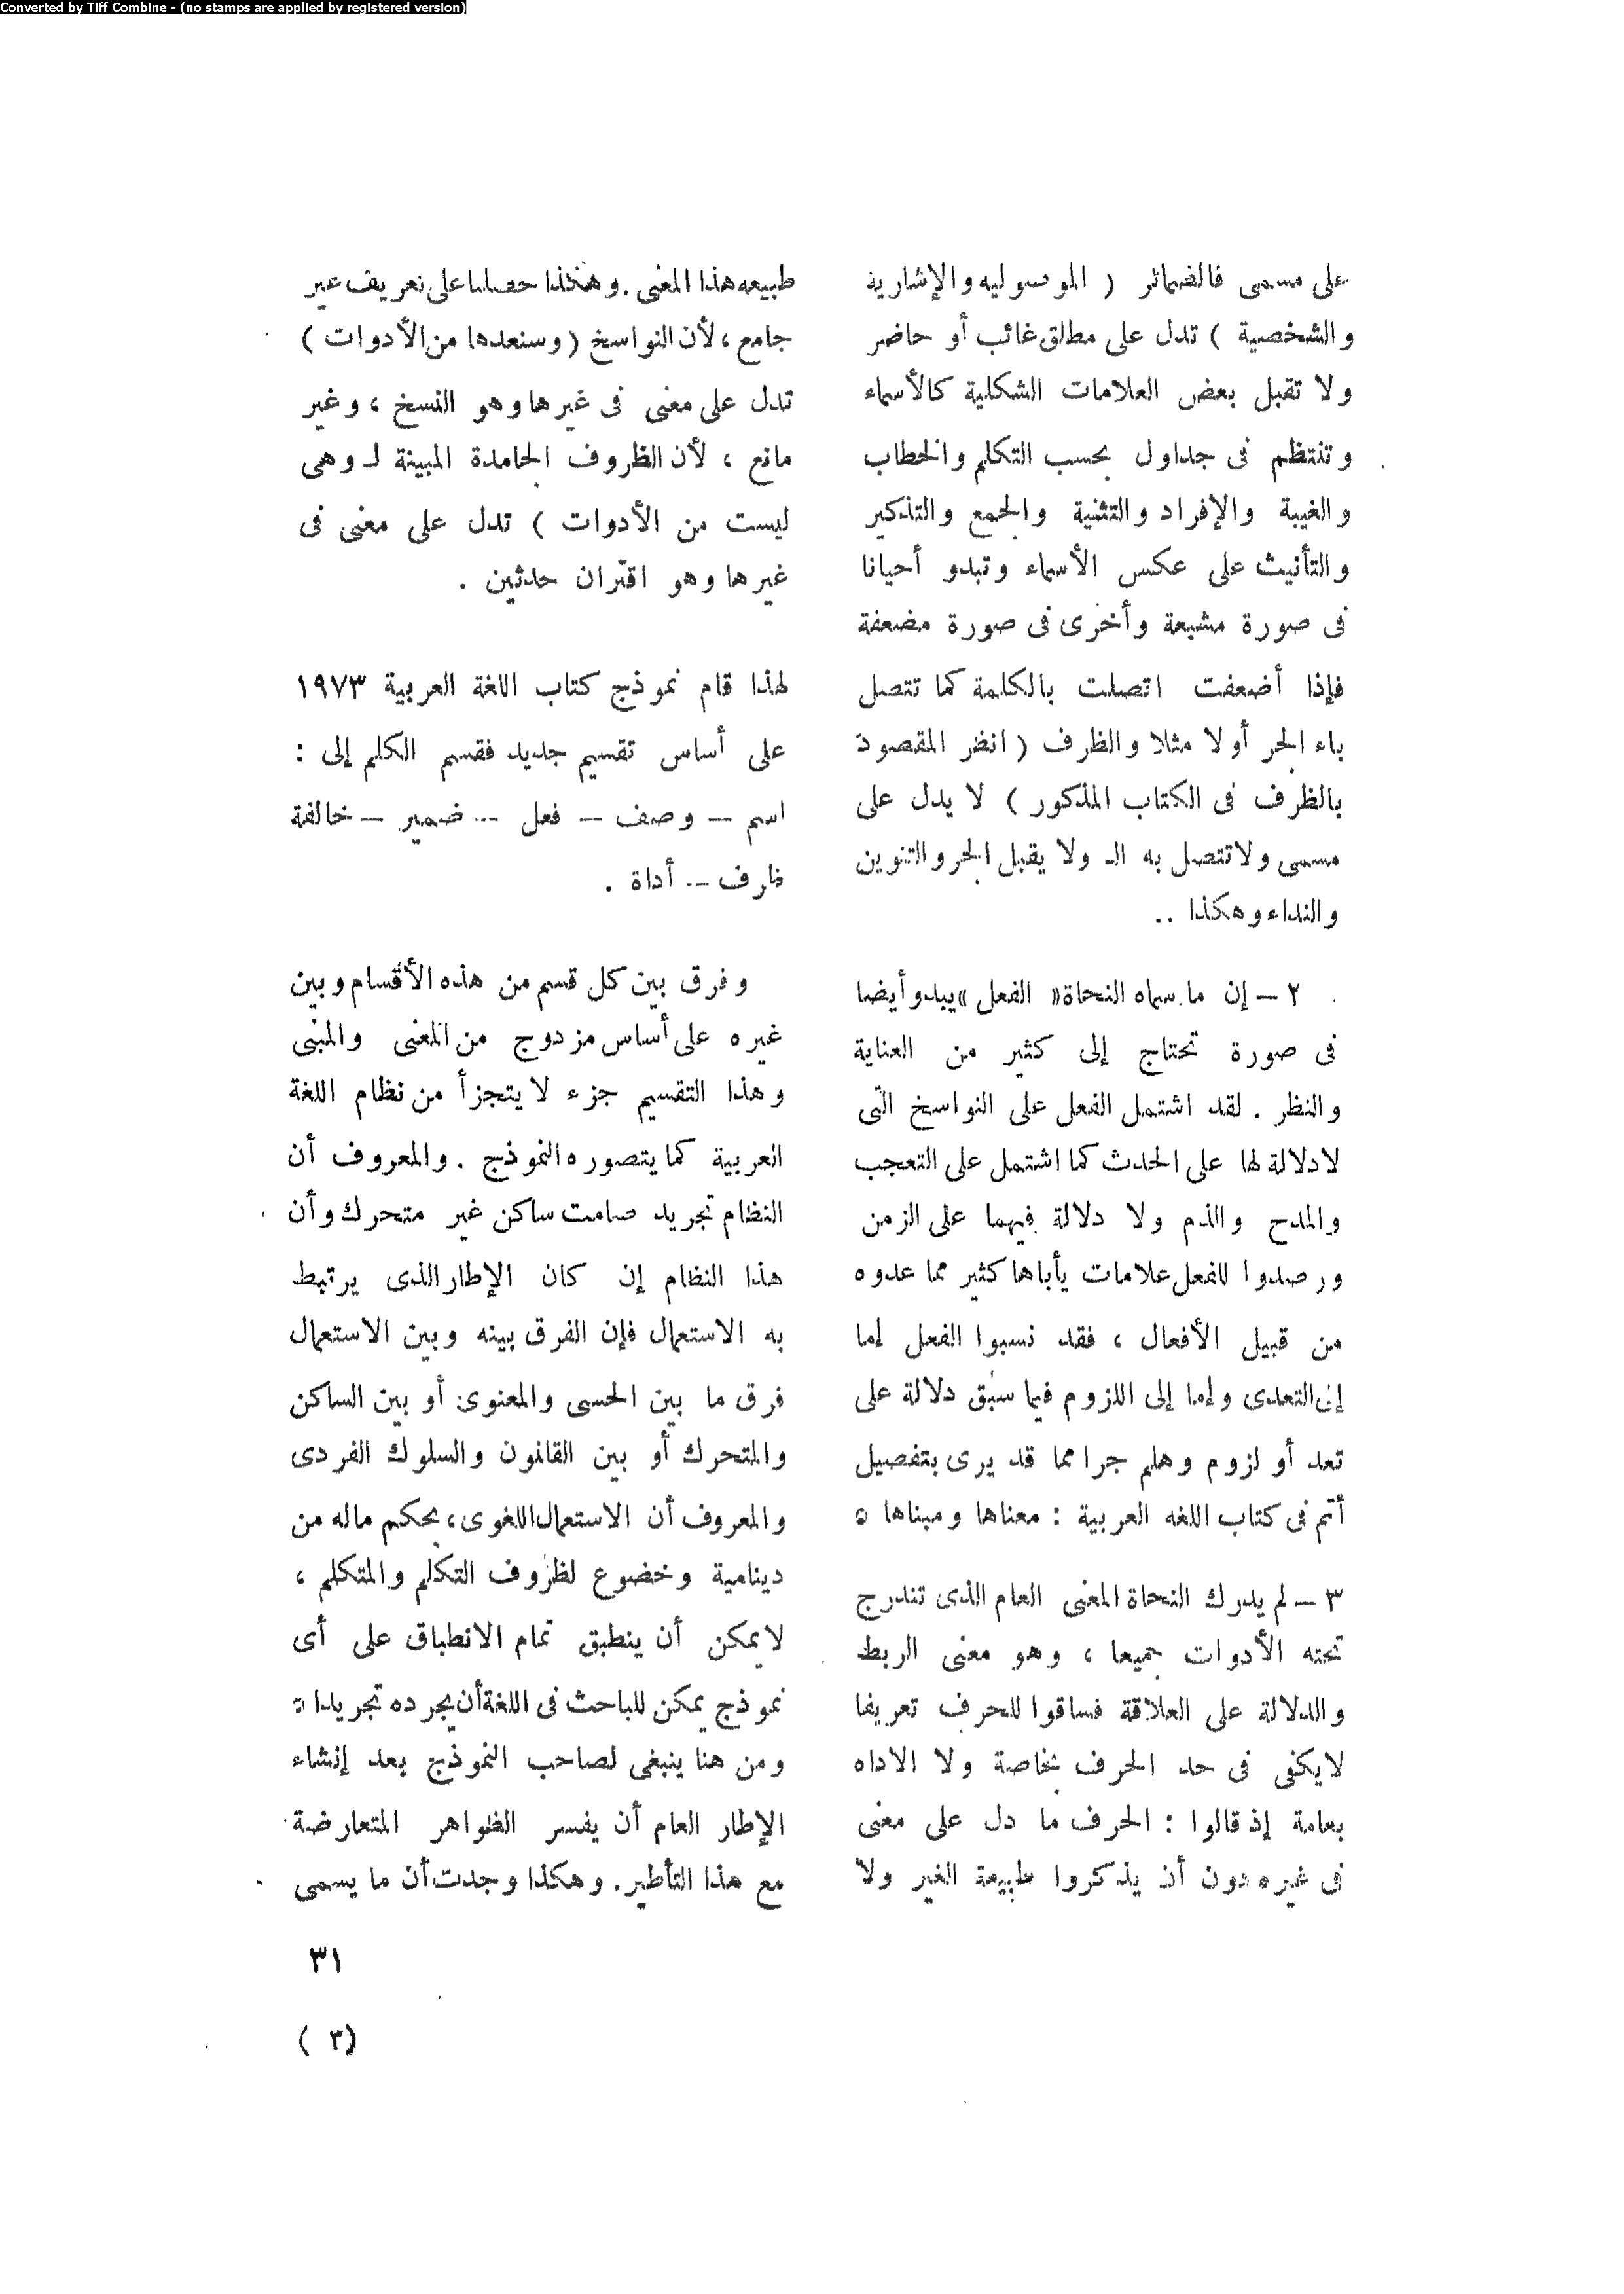 Converted by Tiff Combine - (no stamps are applied by registered version)
على مسمى فالضمائر ( الموصوليه والإشارية
والشخصية ) تدل على مطلق غائب أو حاضر
ولا تقبل بعض العلامات الشكلية كالأسماء
وتنتظم فى جداول بحسب التكلم والخطاب
والغيبة والإفراد والتثنية والجمع والتذكير
والتأنيث على عكس الأسماء وتبدو أحيانا
فى صورة مشبعة وأخرى فى صورة مضعفة
فإذا أضعفت اتصلت بالكلمة كما تتصل
باء الجر أولا مثلا والظرف ( انظر المقصود
بالظرف فى الكتاب المذكور ) لا يدل على
مسمى ولاتتصل به الـ ولا يقبل الجر والتنوين
والنداء وهكذا ..
٢ – إن ما سماه النحاة « الفعل » يبدو أيضا
فى صورة تحتاج إلى كثير من العناية
والنظر . لقد اشتمل الفعل على النواسخ التى
لادلالة لها على الحدث كما اشتمل على التعجب
والمدح والذم ولا دلالة فيهما على الزمن
ورصدوا للفعل علامات يأباها كثير مما عدوه
من قبيل الأفعال ، فقد نسبوا الفعل إما
إلى التعدى وإما إلى اللزوم فيما سبق دلالة على
تعد أو لزوم وهلم جرا مما قد يرى بتفصيل
أتم فى كتاب اللغه العربية : معناها ومبناها .
٣ – لم يدرك النحاة المعنى العام الذى تندرج
تحته الأدوات جميعا ، وهو معنى الربط
والدلالة على العلاقة فساقوا للحرف تعريفا
لايكفى فى حد الحرف بخاصة ولا الاداه
بعامة إذ قالوا : الحرف ما دل على معنى
فى غيره دون أن يذكروا طبيعة الغير ولا
طبيعه هذا المعنى . وهكذا حصلنا على تعريف غير
جامع ، لأن النواسخ ( وسنعدها من الأدوات )
تدل على معنى فى غيرها وهو النسخ ، وغير
مانع ، لأن الظروف الجامدة المبينة لـ وهى
ليست من الأدوات ) تدل على معنى فى
غيرها وهو اقتران حدثين .
لهذا قام نموذج كتاب اللغة العربية ١٩٧٣
على أساس تقسيم جديد فقسم الكلم إلى :
اسم – وصف – فعل – ضمير – خالفة
ظرف – أداة .
وفرق بين كل قسم من هذه الأقسام وبين
غيره على أساس مزدوج من المعنى والمبنى
وهذا التقسيم جزء لا يتجزأ من نظام اللغة
العربية كما يتصوره النموذج . والمعروف أن
النظام تجريد صامت ساكن غير متحرك وأن
هذا النظام إن كان الإطار الذى يرتبط
به الاستعمال فإن الفرق بينه وبين الاستعمال
فرق ما بين الحسى والمعنوى أو بين الساكن
والمتحرك أو بين القانون والسلوك الفردى
والمعروف أن الاستعمال اللغوى ، بحكم ماله من
دينامية وخضوع لظروف التكلم والمتكلم ،
لايمكن أن ينطبق تمام الانطباق على أى
نموذج يمكن للباحث فى اللغة أن يجرده تجريدا .
ومن هنا ينبغى لصاحب النموذج بعد إنشاء
الإطار العام أن يفسر الظواهر المتعارضة
مع هذا التأطير . وهكذا وجدت أن ما يسمى
٣١
( ٣ )